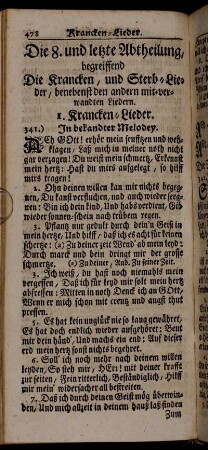 478 Krancken-Lieder.
Die 8. und letzte Abtheilung,
begreiffend
Die Krancken, und Sterb-Lie-
der, benebenst den andern mit-ver-
wandten Liedern.
1. Krancken-Lieder.
341.) In bekandter Melodey.
ACh GOtt! erhör mein seufftzen und weh-
klagen, Laß mich in meiner noth nicht
gar verzagen! Du weist mein schmertz, Erkennst
mein hertz: Hast du mirs aufgelegt, so hilff
mirs tragen!
2. Ohn deinen willen kan mir nichts begeg-
nen, Du kanst verfluchen, und auch wieder seg-
nen: Bin ich dein kind, Und habs verdient, Gib
wieder sonnen-schein nach trübem regen.
3. Pflantz mir gedult durch dein'n Geist in
mein hertz, Und hilff, daß ich es acht für keinen
schertz: (a) Zu deiner zeit Wend' ab mein leyd:
Durch marck und bein dringt mir der grosse
schmertze. (a) Zu einer, And. Zu seiner Zeit.
4. Ich weiß, du hast noch niemahls mein
vergessen, Daß ich für leid mir solt mein hertz
abfressen: Mitten in noth Denck ich an GOtt,
Wenn er mich schon mit creutz und angst thut
pressen.
5. Es hat kein unglück nie so lang gewähret,
Es hat doch endlich wieder aufgehöret: Beut
mir dein händ, Und machs ein end: Auf dieser
erd mein hertz sonst nichts begehret.
6. Soll ich noch mehr nach deinem willen
leyden, So steh mir, HErr! mit deiner krafft
zur seiten, Fein ritterlich, Beständiglich, Hilff
mir mein' widersacher all bestreiten.
7. Daß ich durch deinen Geist mög überwin-
den, Und mich allzeit in deinem hauß laß finden
Zum